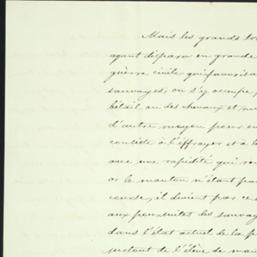 Mais les grands tro
ayant disparu en grande
guerre civile qui favorisa
sauvages, on s'y occupe,
bétail ou des chevaux et
d'autre moyen pour en
consiste à l'effrayer et à l
avec une rapidité qui
or le mouton n'étant pas
course, il devient par ce
aux poursuites des sauvag
dans l'état actuel de la fr
portant de l'élève de mou